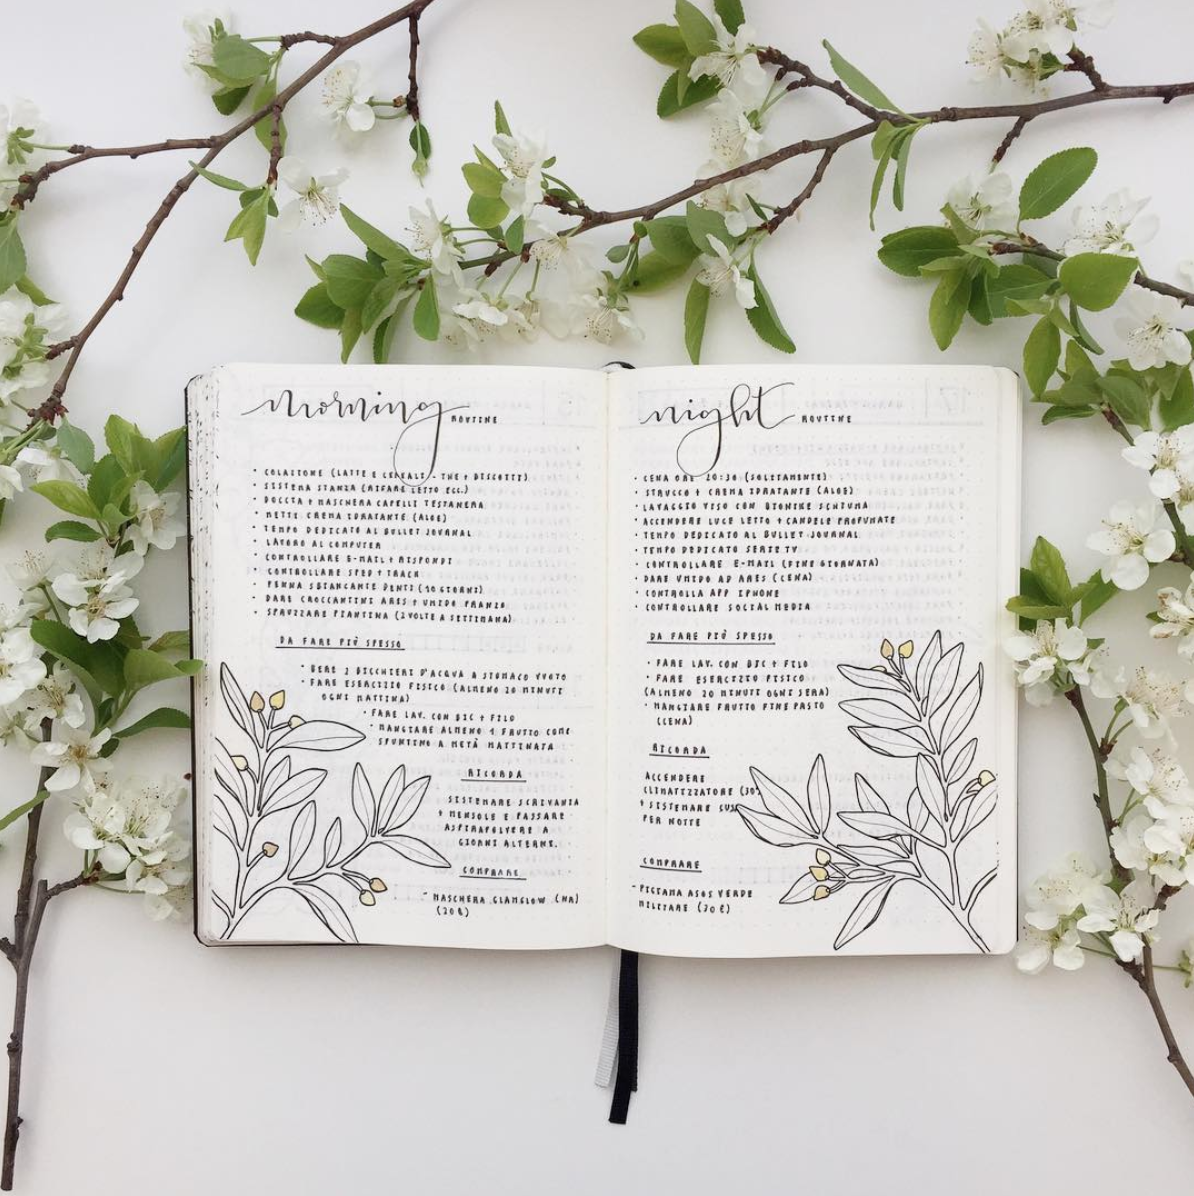 morning ROUTINE
• COLAZIONE (LATTE E CEREALI - THE + BISCOTTI)
• SISTEMA STANZA (RIFARE LETTO ECC.)
• DOCCIA + MASCHERA CAPELLI TESTANERA
• METTI CREMA IDRATANTE (ALOE)
• TEMPO DEDICATO AL BULLET JOURNAL
• LAVORO AL COMPUTER
• CONTROLLARE E-MAIL + RISPONDI
• CONTROLLARE SPED + TRACK
• PENNA SBIANCANTE DENTI (10 GIORNI)
• DARE CROCCANTINI ARES + UMIDO PRANZO
• SPRUZZARE PIANTINA (2 VOLTE A SETTIMANA)
DA FARE PIÙ SPESSO
• BERE 2 BICCHIERI D'ACQUA A STOMACO VUOTO
• FARE ESERCIZIO FISICO (ALMENO 20 MINUTI
OGNI MATTINA)
• FARE LAV. CON BIC + FILO
• MANGIARE ALMENO 1 FRUTTO COME
SPUNTINO A METÀ MATTINATA
RICORDA
SISTEMARE SCRIVANIA
+ MENSOLE E PASSARE
ASPIRAPOLVERE A
GIORNI ALTERNI.
COMPRARE
- MASCHERA GLAMGLOW (NA)
(20 €)
night ROUTINE
• CENA ORE 20:30 (SOLITAMENTE)
• STRUCCO + CREMA IDRATANTE (ALOE)
• LAVAGGIO VISO CON BIONIKE
• ACCENDERE LUCE LETTO + CANDELE PROFUMATE
• TEMPO DEDICATO AL BULLET JOURNAL
• TEMPO DEDICATO SERIE TV
• CONTROLLARE E-MAIL (FINE GIORNATA)
• DARE UMIDO AD ARES (CENA)
• CONTROLLA APP IPHONE
• CONTROLLARE SOCIAL MEDIA
DA FARE PIÙ SPESSO
• FARE LAV. CON BIC + FILO
• FARE ESERCIZIO FISICO
(ALMENO 20 MINUTI OGNI SERA)
• MANGIARE FRUTTO FINE PASTO
(CENA)
RICORDA
ACCENDERE
CLIMATIZZATORE
+ SISTEMARE
PER NOTTE
COMPRARE
- PIGIAMA ASOS VERDE
MILITARE (20 €)